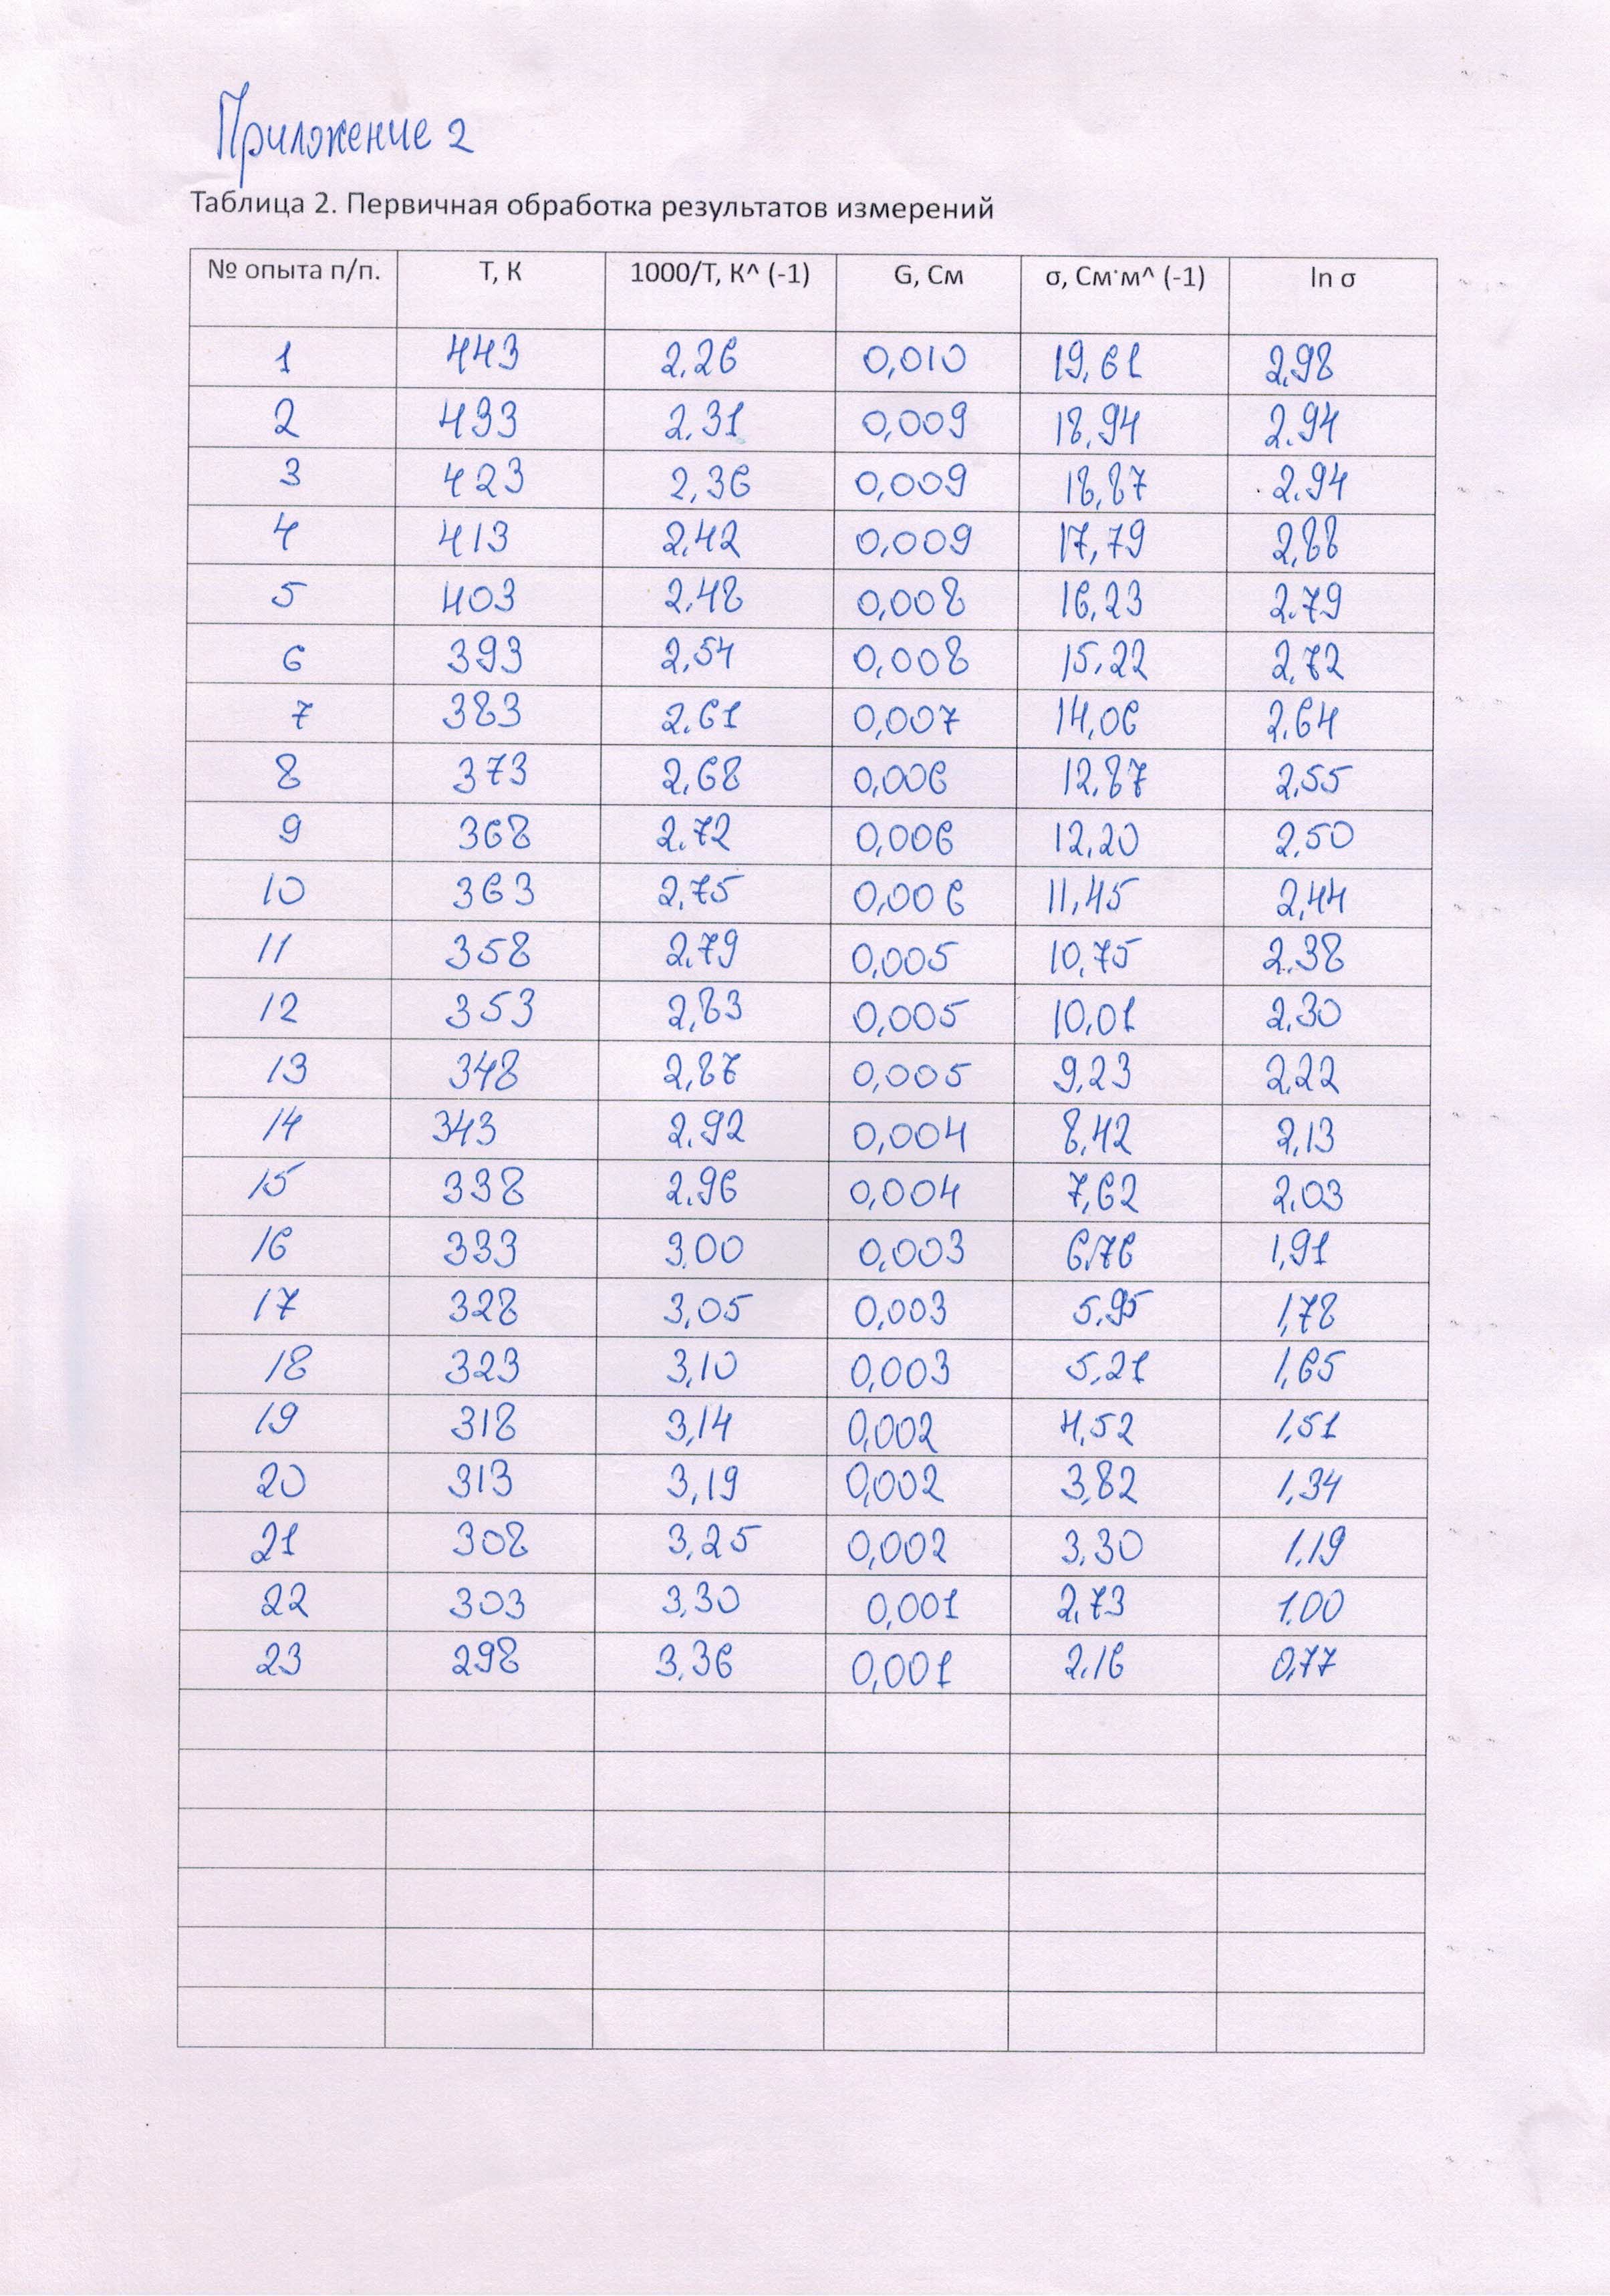 Приложение 2
Таблица 2. Первичная обработка результатов измерений
№ опыта п/п. T, K 1000/T, K^ (-1) G, См σ, См·м^ (-1) ln σ
1 443 2,26 0,010 19,61 2,98
2 433 2,31 0,009 18,94 2.94
3 423 2,36 0,009 18,87 2.94
4 413 2,42 0,009 17,79 2,88
5 403 2,48 0,008 16,23 2.79
6 393 2,54 0,008 15,22 2,72
7 383 2,61 0,007 14,06 2,64
8 373 2,68 0,006 12,87 2,55
9 368 2.72 0,006 12,20 2,50
10 363 2,75 0,006 11,45 2,44
11 358 2,79 0,005 10,75 2.38
12 353 2,83 0,005 10,01 2,30
13 348 2,87 0,005 9,23 2,22
14 343 2,92 0,004 8,42 2,13
15 338 2,96 0,004 7,62 2,03
16 333 3,00 0,003 6,76 1,91
17 328 3,05 0,003 5,95 1,78
18 323 3,10 0,003 5,21 1,65
19 318 3,14 0,002 4,52 1,51
20 313 3,19 0,002 3,82 1,34
21 308 3,25 0,002 3,30 1,19
22 303 3,30 0,001 2,73 1.00
23 298 3,36 0,001 2,16 0,77